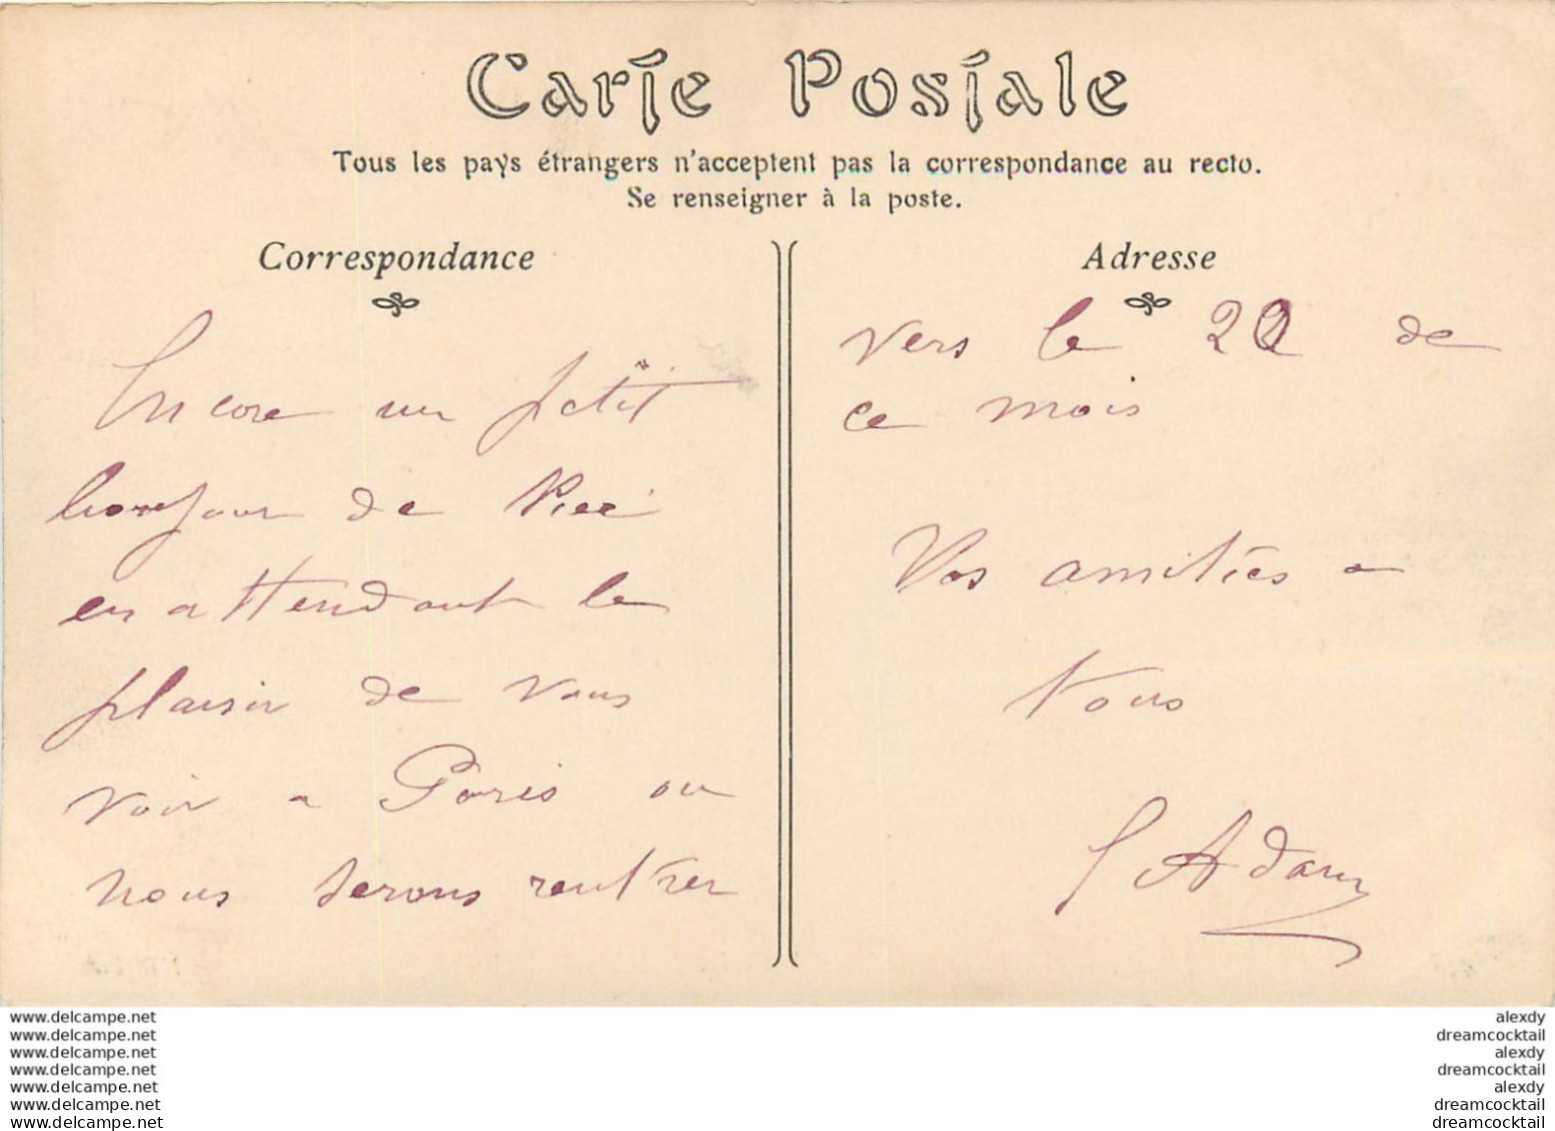 Carte Postale
Tous les pays étrangers n'acceptent pas la correspondance au recto.
Se renseigner à la poste.
Correspondance
Encore un petit
bonjour de
en attendant le
plaisir de vous
voir a Paris ou
nous serons rentrer
Adresse
vers le 22 de
ce mois
Vos amitiés a
tous
Adam
www.delcampe.net
www.delcampe.net
www.delcampe.net
www.delcampe.net
www.delcampe.net
www.delcampe.net
www.delcampe.net
alexdy
dreamcocktail
alexdy
dreamcocktail
alexdy
dreamcocktail
dreamcocktail